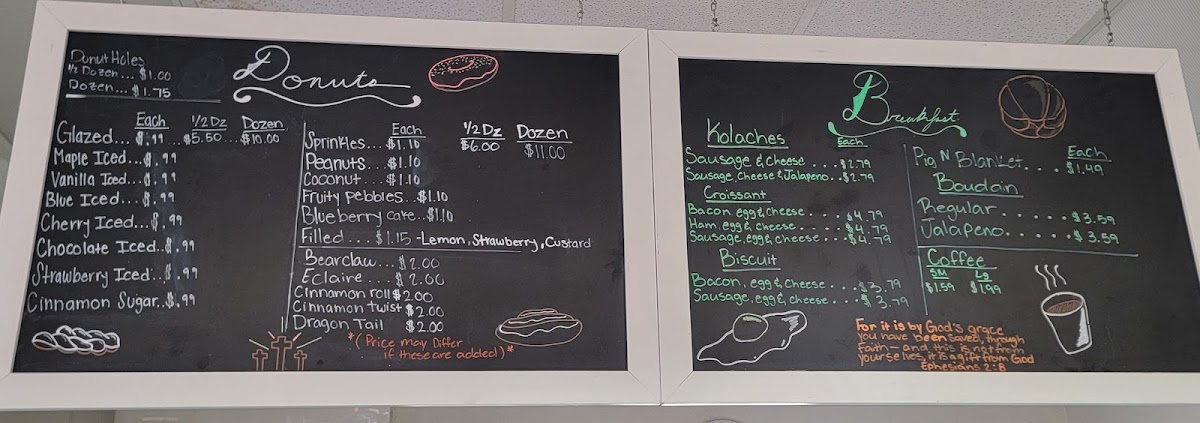 Donut Holes
1/2 Dozen... $1.00
Dozen... $1.75
Donuts
Each 1/2 Dz Dozen
Glazed...$.99...$5.50...$10.00
Maple Iced...$.99
Vanilla Iced...$.99
Blue Iced...$.99
Cherry Iced...$.99
Chocolate Iced..$.99
Strawberry Iced..$.99
Cinnamon Sugar..$.99
Each 1/2 Dz Dozen
Sprinkles...$1.10 $6.00 $11.00
Peanuts...$1.10
Coconut...$1.10
Fruity pebbles...$1.10
Blueberry cake..$1.10
Filled....$1.15 -Lemon, Strawberry, Custard
Bearclaw...$2.00
Eclaire...$2.00
Cinnamon roll $2.00
Cinnamon twist $2.00
Dragon Tail $2.00
*(Price may Differ
if these are added)*
Breakfast
Kolaches Each
Sausage & cheese....$2.79
Sausage, cheese & Jalapeno..$2.79
Croissant
Bacon, egg & cheese....$4.79
Ham, egg & cheese.....$4.79
Sausage, egg & cheese....$4.79
Biscuit
Bacon, egg & cheese...$3.79
Sausage, egg & cheese....$3.79
Each
Pig N Blanket....$1.49
Boudain
Regular......$3.59
Jalapeno.....$3.59
Coffee
SM Lg
$1.59 $1.99
For it is by God's grace
you have been saved, through
faith— and this is not from
yourselves, it is a gift from God
Ephesians 2:8